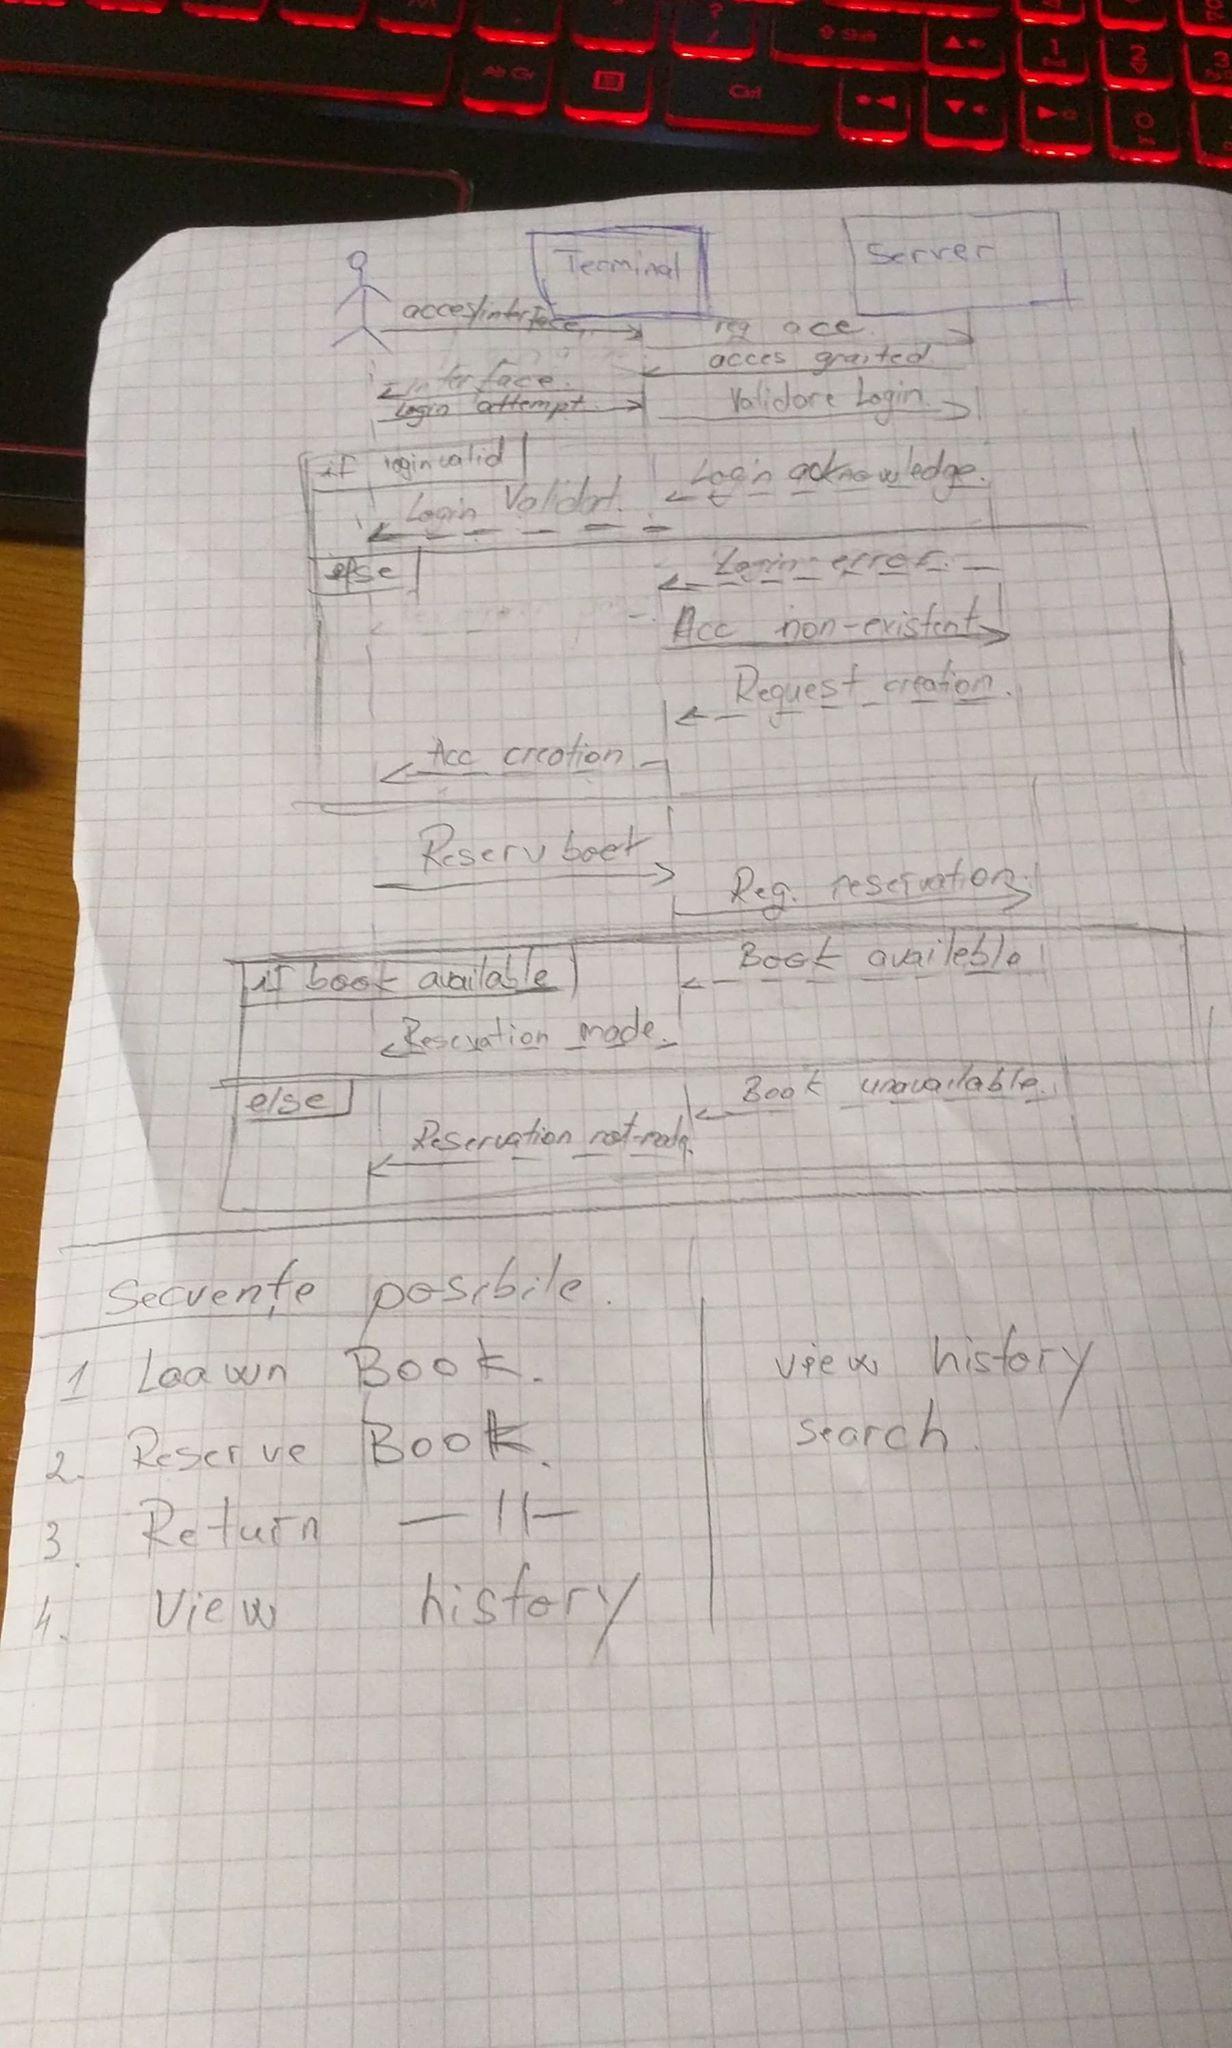 Alt Gr
Ctrl
Shift
1
2
3
0
Terminal
Server
acces/interface
req acc.
acces granted
interface.
Login attempt.
Validare Login.
if login valid
Login acknowledge.
Login Validat.
else
Login error.
Acc non-existent
Request creation.
Acc creation
Reserv book
Reg. reservation.
if book available
Book available
Reservation made.
else
Book unavailable.
Reservation not-made.
Secvențe posibile.
1 Loawn Book.
view history
2. Reserve Book.
search.
3. Return —||—
4. View history